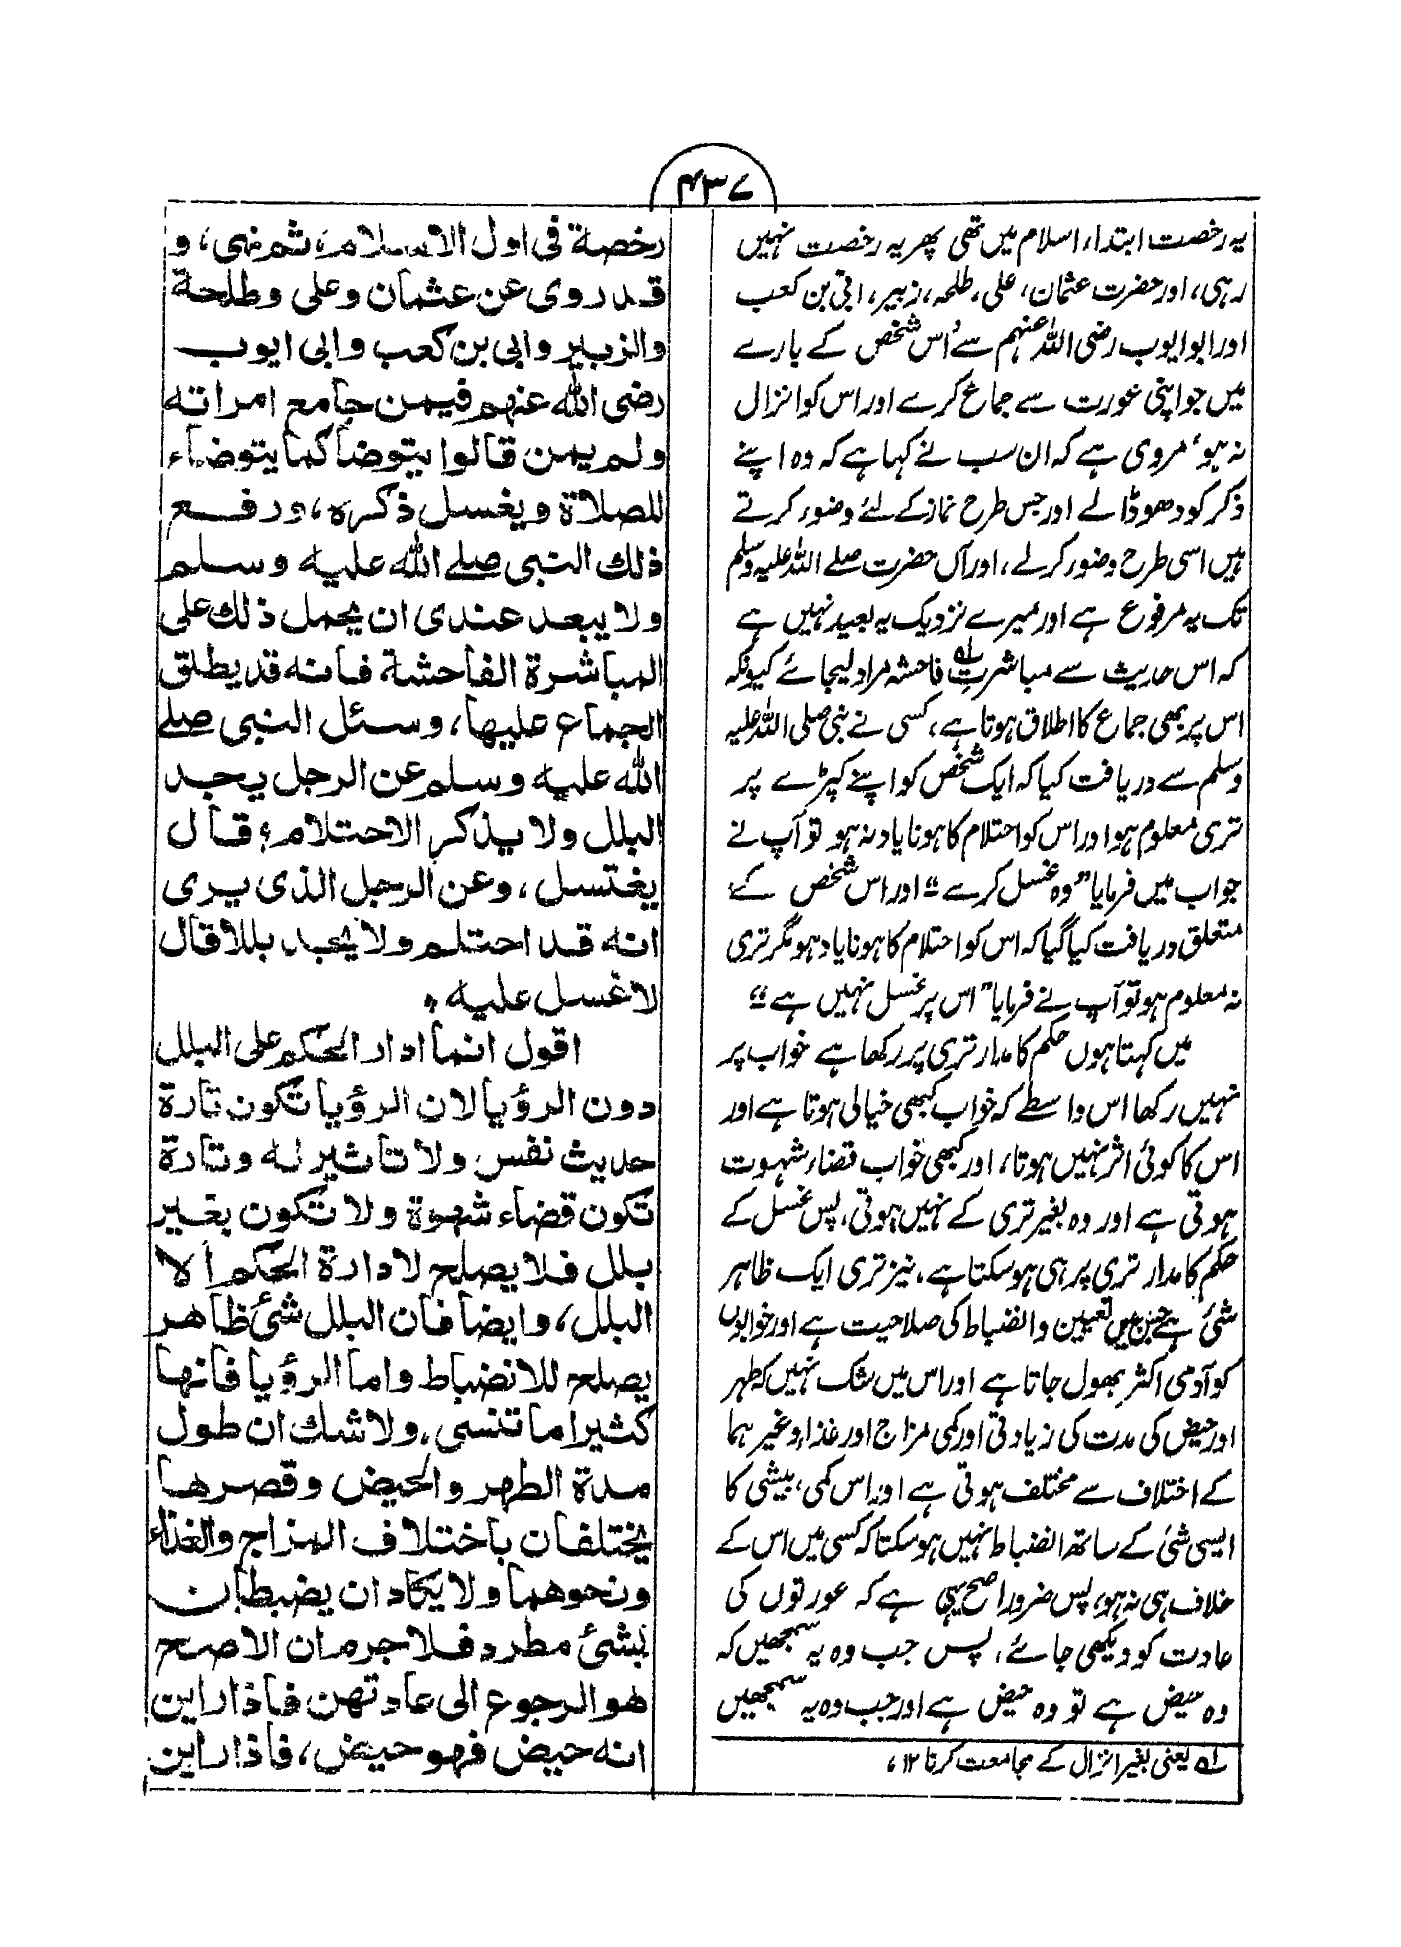 ۴۳۷
یہ رخصت ابتداء اسلام میں تھی پھر یہ رخصت نہیں
رہی، اور حضرت عثمان، علی، طلحہ، زبیر، ابی بن کعب
اور ابو ایوب رضی اللہ عنہم سے اُس شخص کے بارے
میں جو اپنی عورت سے جماع کرے اور اس کو انزال
نہ ہو، مروی ہے کہ ان سب نے کہا ہے کہ وہ اپنے
ذکر کو دھو ڈالے اور جس طرح نماز کے لئے وضوء کرتے
ہیں اسی طرح وضوء کرلے، اور آں حضرت صلے اللہ علیہ وسلم
تک یہ مرفوع ہے اور میرے نزدیک یہ بعید نہیں ہے
کہ اس حدیث سے مباشرت لہ فاحشہ مراد لیجائے کیونکہ
اس پر بھی جماع کا اطلاق ہوتا ہے، کسی نے نبی صلی اللہ علیہ
وسلم سے دریافت کیا کہ ایک شخص کو اپنے کپڑے پر
تری معلوم ہو اور اس کو احتلام کا ہونا یاد نہ ہو تو آپ نے
جواب میں فرمایا "وہ غسل کرے" اور اس شخص کے
متعلق دریافت کیا گیا کہ اس کو احتلام کا ہونا یاد ہو مگر تری
نہ معلوم ہو تو آپ نے فرمایا "اس پر غسل نہیں ہے"
میں کہتا ہوں حکم کا مدار تری پر رکھا ہے خواب پر
نہیں رکھا اس واسطے کہ خواب کبھی خیالی ہوتا ہے اور
اس کا کوئی اثر نہیں ہوتا، اور کبھی خواب قضاء شہوت
ہوتی ہے اور وہ بغیر تری کے نہیں ہوتی، پس غسل کے
حکم کا مدار تری پر ہی ہو سکتا ہے، نیز تری ایک ظاہر
شئ ہے جس میں تعیین و انضباط کی صلاحیت ہے اور خوابوں
کو آدمی اکثر بھول جاتا ہے اور اس میں شک نہیں کہ طہر
اور حیض کی مدت کی زیادتی اور کمی مزاج اور غذاء وغیر ہما
کے اختلاف سے مختلف ہوتی ہے اور اس کمی، بیشی کا
ایسی شئ کے ساتھ انضباط نہیں ہو سکتا کہ کسی میں اس کے
خلاف ہی نہ ہو، پس ضرور اصح یہی ہے کہ عورتوں کی
عادت کو دیکھی جائے، پس جب وہ یہ سمجھیں کہ
وہ حیض ہے تو وہ حیض ہے اور جب وہ یہ سمجھیں
لہ یعنی بغیر انزال کے مجامعت کرنا ۱۲،
رخصة فی اول الاسلام، ثم نھی، و
قد روی عن عثمان وعلی وطلحة
والزبیر وابی بن کعب وابی ایوب
رضی اللہ عنھم فیمن جامع امراتہ
ولم یمن قالوا یتوضأ کما یتوضاء
للصلاة ویغسل ذکرہ، ورفع
ذلك النبی صلے اللہ علیہ وسلم
ولا یبعد عندی ان یحمل ذلك علی
المباشرة الفاحشة فانہ قد یطلق
الجماع علیھا، وسئل النبی صلے
اللہ علیہ وسلم عن الرجل یجد
البلل ولا یذکر الاحتلام، قال
یغتسل، وعن الرجل الذی یری
انہ قد احتلم ولا یجد بللا قال
لا غسل علیہ،
اقول انما ادار الحکم علی البلل
دون الرؤیا لان الرؤیا تکون تارة
حدیث نفس ولا تاثیر لہ وتارة
تکون قضاء شھوة ولا تکون بغیر
بلل فلا یصلح لادارة الحکم الا
البلل، وایضا فان البلل شئ ظاھر
یصلح للانضباط واما الرؤیا فانھا
کثیرا ما تنسی، ولا شك ان طول
مدة الطھر والحیض وقصرھا
یختلفان باختلاف المزاج والغذاء
ونحوھما ولا یکاد ان یضبطان
بشئ مطرد فلا جرم ان الاصح
ھو الرجوع الی عادتھن فاذا راین
انہ حیض فھو حیض، فاذا راین